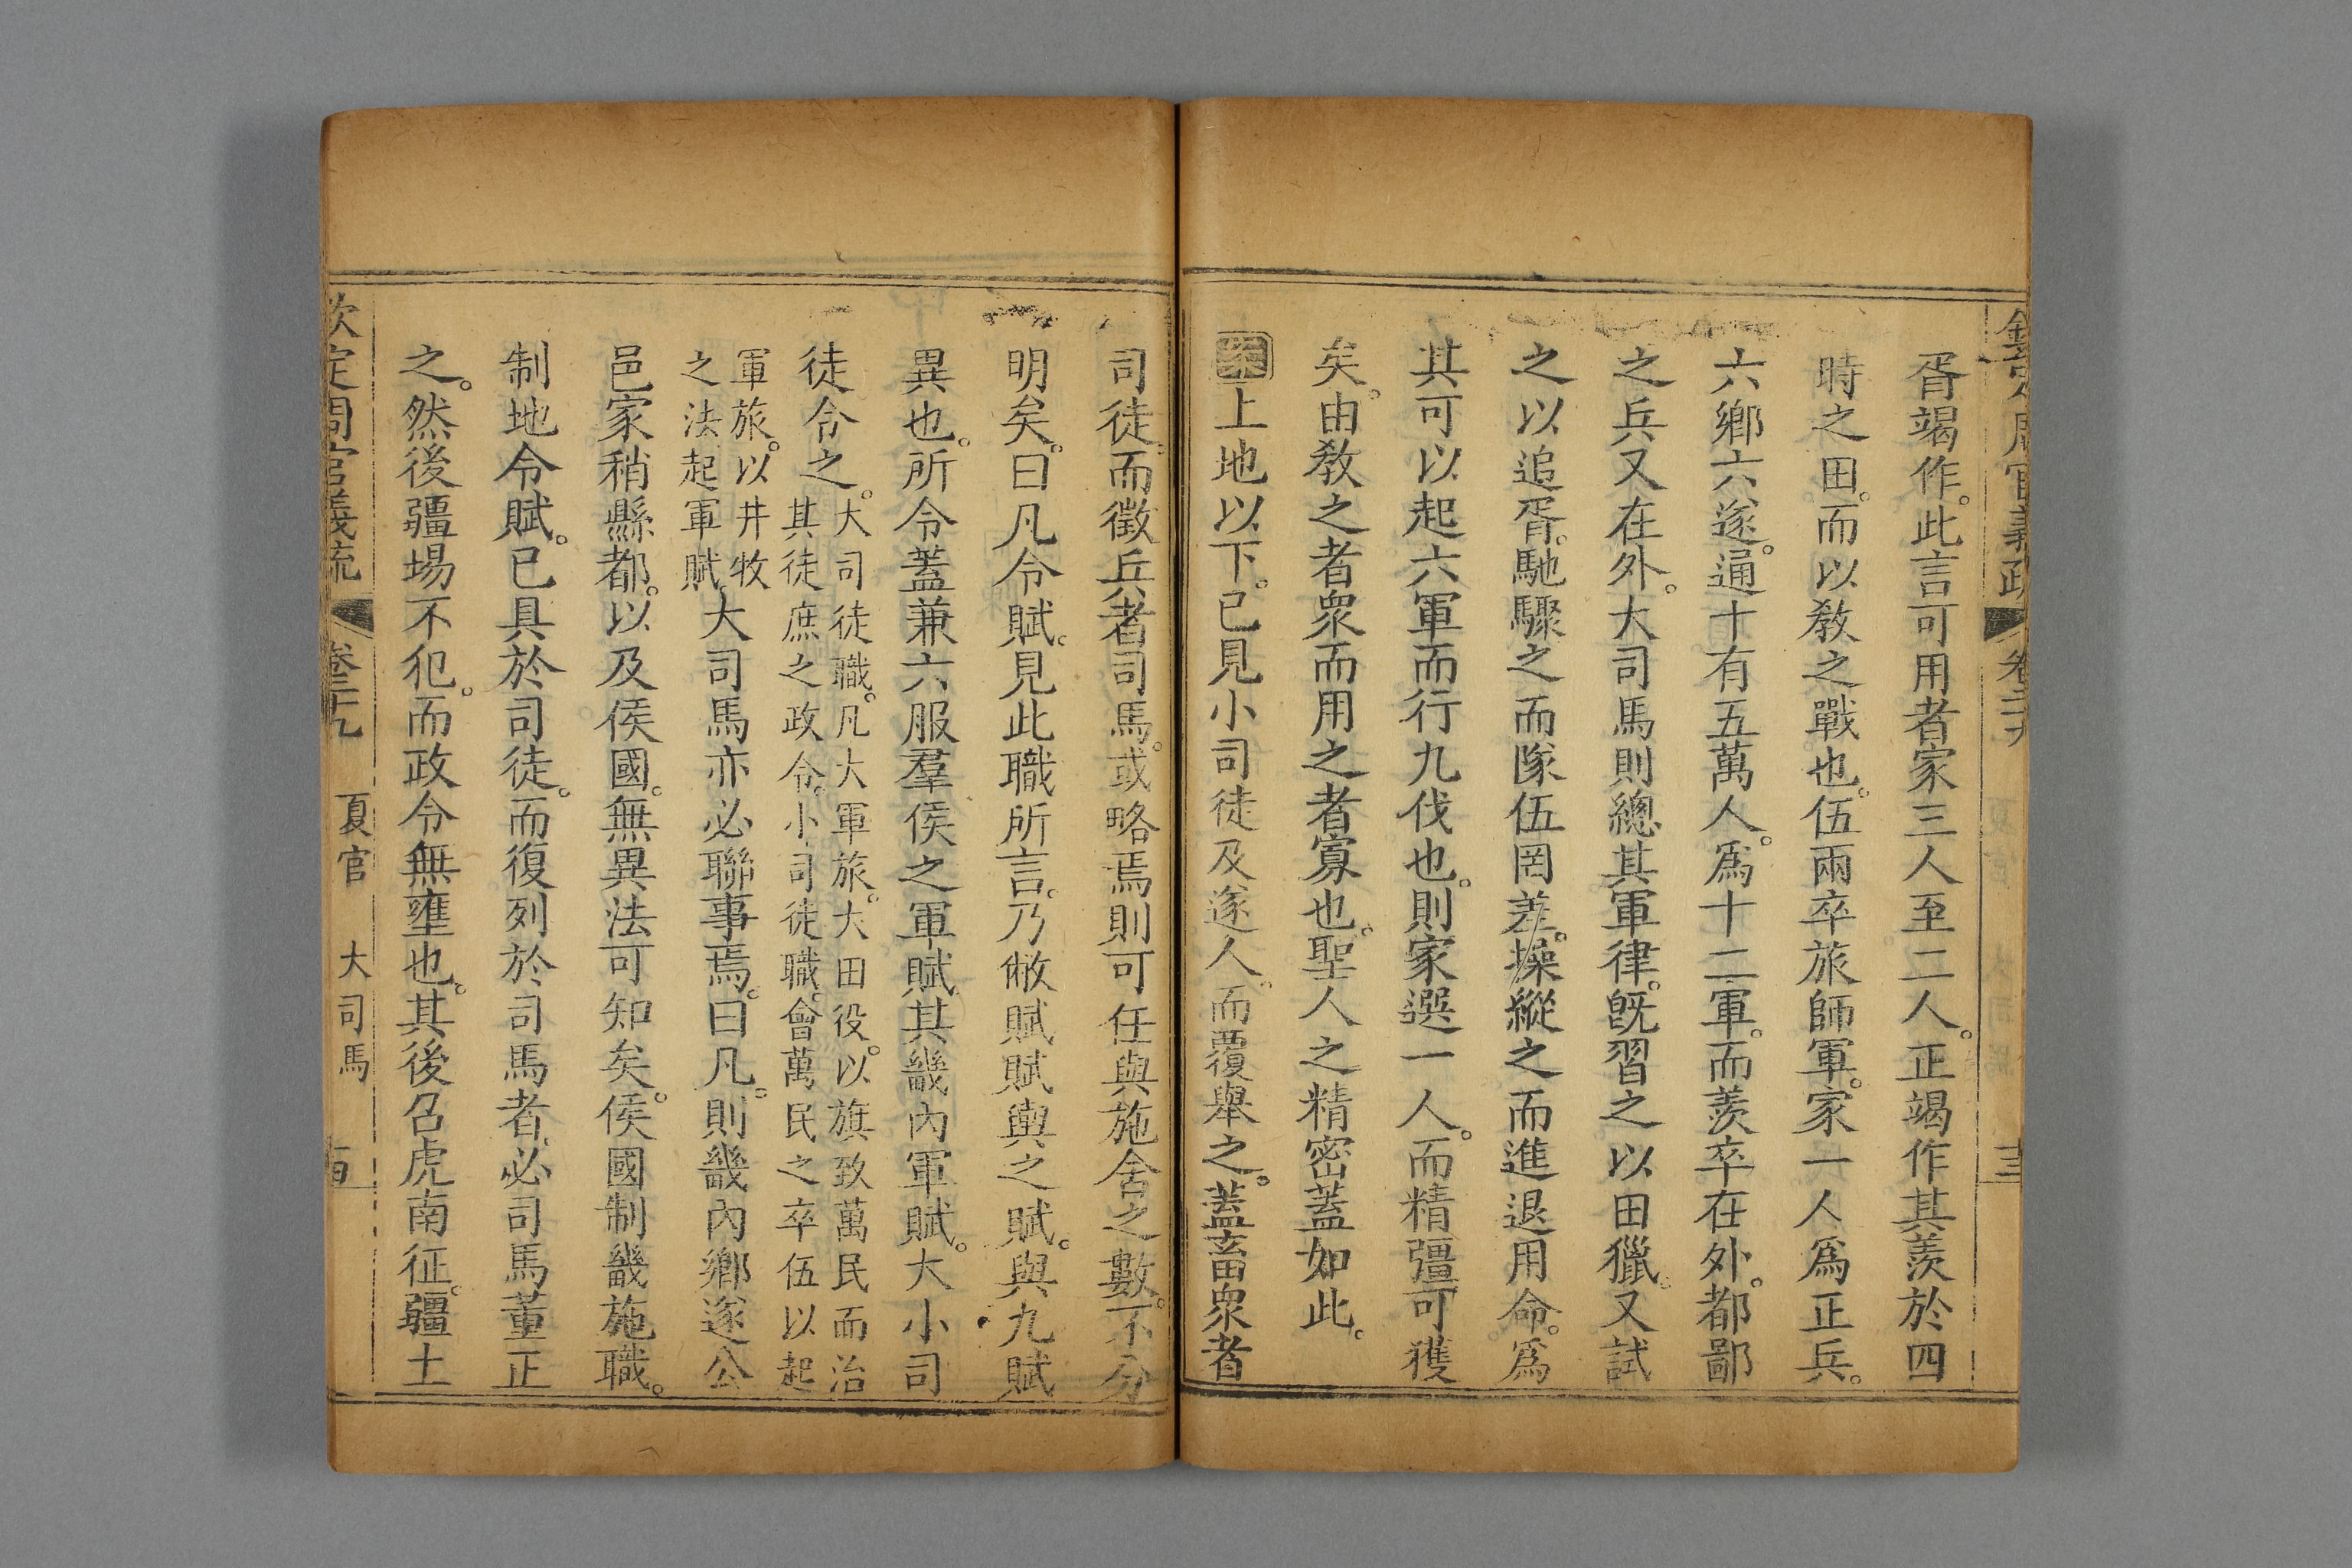 欽定周官義疏 卷二十九
十三
胥竭作。此言可用者家三人至二人。正竭作其羨於四
時之田。而以敎之戰也。伍兩卒旅師軍。家一人爲正兵。
六鄉六遂。通十有五萬人。爲十二軍。而羨卒在外。都鄙
之兵又在外。大司馬則總其軍律。旣習之以田獵。又試
之以追胥。馳驟之而隊伍罔差。操縱之而進退用命。爲
其可以起六軍而行九伐也。則家選一人。而精彊可獲
矣。由敎之者衆而用之者寡也。聖人之精密蓋如此。
案上地以下。已見小司徒及遂人。而覆舉之。蓋畜衆者
司徒。而徵兵者司馬。或略焉則可任與施舍之數。不分
明矣。曰凡令賦。見此職所言。乃敝賦賦輿之賦。與九賦
異也。所令蓋兼六服羣侯之軍賦。其畿內軍賦。大小司
徒令之。大司徒職。凡大軍旅。大田役。以旗致萬民而治
其徒庶之政令。小司徒職。會萬民之卒伍以起
軍旅。以井牧
之法起軍賦。大司馬亦必聯事焉。曰凡。則畿內鄉遂公
邑家稍縣都。以及侯國。無異法可知矣。侯國制畿施職。
制地令賦。已具於司徒。而復列於司馬者。必司馬董正
之。然後疆埸不犯。而政令無壅也。其後召虎南征。疆土
欽定周官義疏 卷二十九 夏官 大司馬